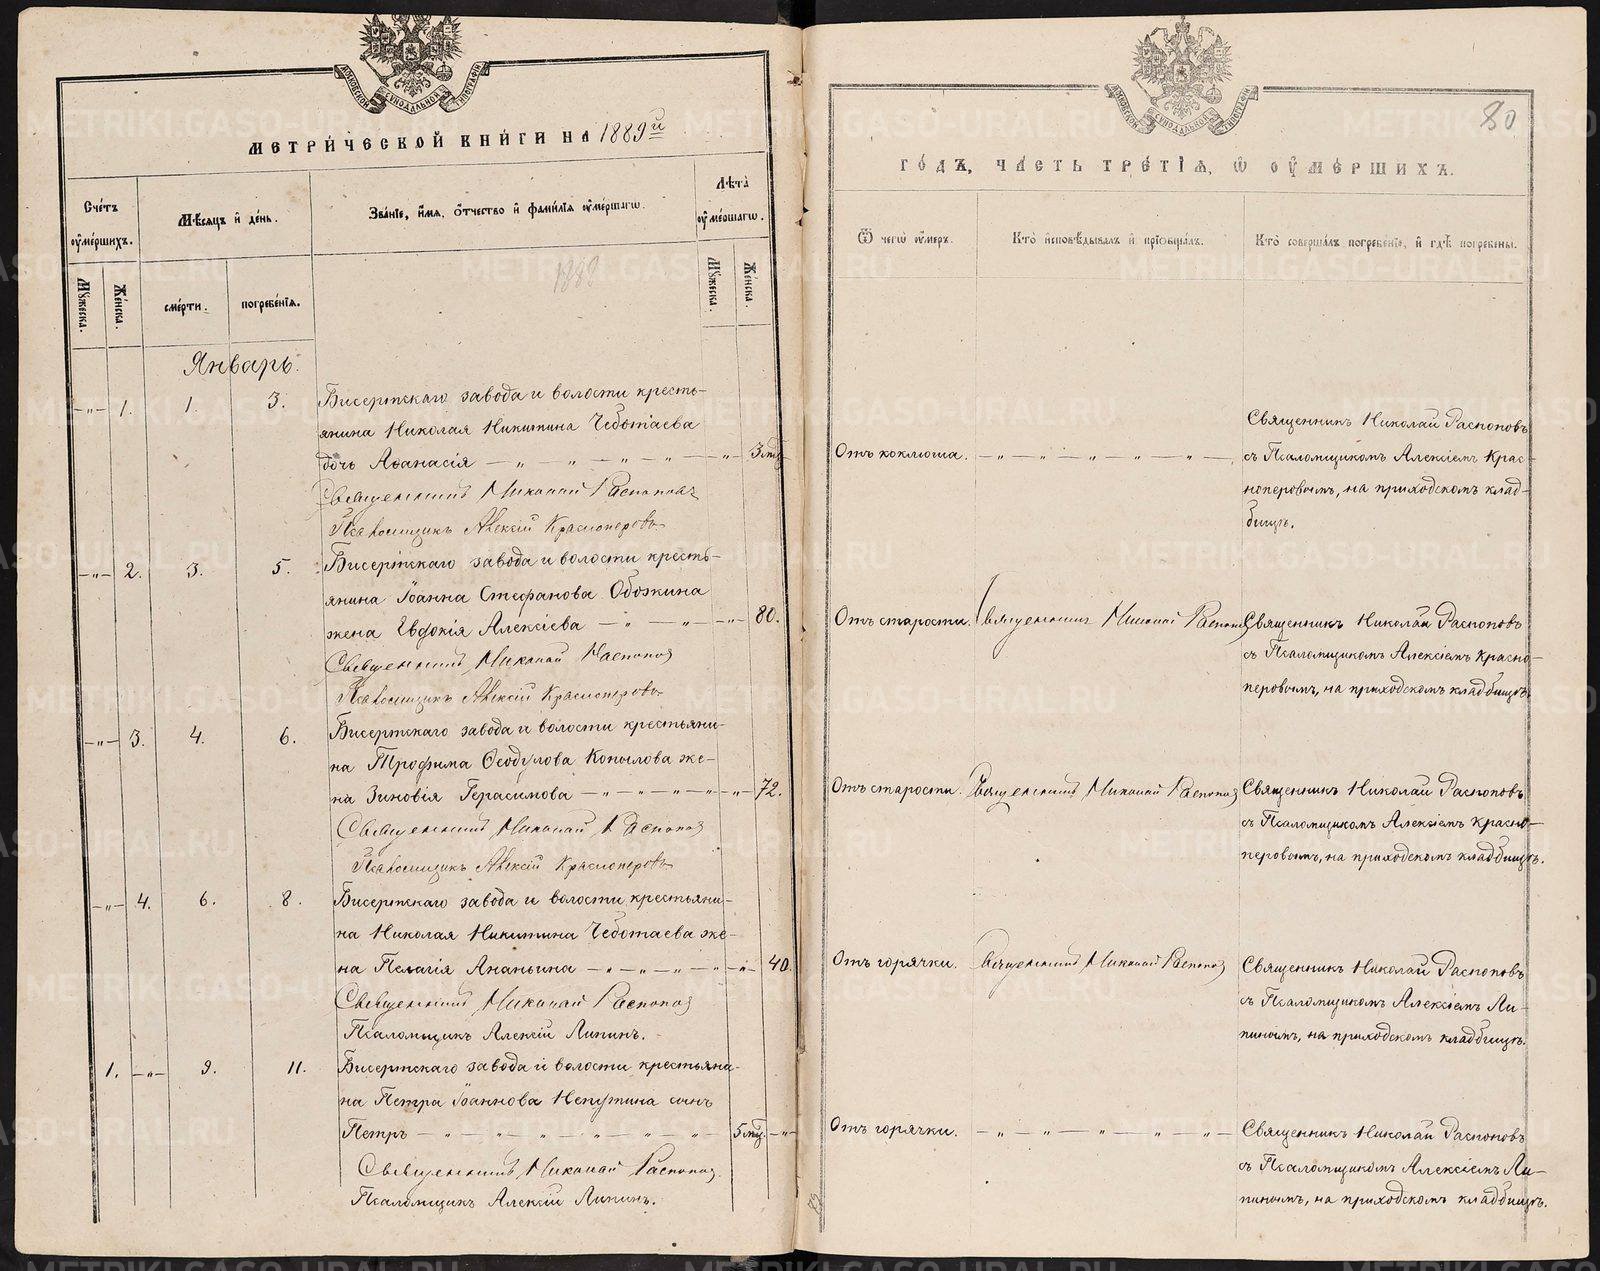 МОСКОВСКОЙ СѴНОДАЛЬНОЙ ТИПОГРАФІИ
МЕТРИ́ЧЕСКОЙ КНИ́ГИ НА 1889й
Сче́тъ оу҆ме́ршихъ.
Мѣ́сяцъ и҆ де́нь.
Зва́нїе, и҆́мя, ѻ҆́тчество и҆ фами́лїя оу҆ме́ршагѡ.
Лѣ́та оу҆ме́ршагѡ.
Мꙋ́жеска.
Же́нска.
сме́рти.
погребе́нїя.
1889
Мꙋ́жеска.
Же́нска.
Январь.
—„— 1. 1. 3. Бисертскаго завода и волости кресть-
янина Николая Никитина Чеботаева
дочь Аѳанасія — „ — „ — „ — „ — „ — 3 мѣс.
Священникъ Николай Распоповъ
Псаломщикъ Алексій Красноперовъ
—„— 2. 3. 5. Бисертскаго завода и волости кресть-
янина Іоанна Стефанова Обожина
жена Евдокія Алексіева — „ — „ — „ — 80.
Священникъ Николай Распоповъ
Псаломщикъ Алексій Красноперовъ
—„— 3. 4. 6. Бисертскаго завода и волости крестьяни-
на Трофима Ѳеодулова Копылова же-
на Зиновія Герасимова — „ — „ — „ — „ — 72.
Священникъ Николай Распоповъ
Псаломщикъ Алексій Красноперовъ
—„— 4. 6. 8. Бисертскаго завода и волости крестьяни-
на Николая Никитина Чеботаева же-
на Пелагія Ананьина — „ — „ — „ — „ — 40.
Священникъ Николай Распоповъ
Псаломщикъ Алексій Липинъ.
1. —„— 9. 11. Бисертскаго завода и волости крестьяни-
на Петра Іоаннова Непутина сынъ
Петръ — „ — „ — „ — „ — „ — 5 мѣс. —„—
Священникъ Николай Распоповъ.
Псаломщикъ Алексій Липинъ.
МОСКОВСКОЙ СѴНОДАЛЬНОЙ ТИПОГРАФІИ
80
ГО́ДЪ, ЧА́СТЬ ТРЕ́ТЇЯ, Ѡ҆ ОУ҆МЕ́РШИХЪ.
Ѿ чегѡ̀ оу҆́меръ.
Кто̀ и҆сповѣ́дывалъ и҆ прїобща́лъ.
Кто̀ соверша́лъ погребе́нїе, и҆ гдѣ̀ погребены̀.
Отъ коклюша. — „ — „ — „ — „ — Священникъ Николай Распоповъ
съ Псаломщикомъ Алексіемъ Крас-
ноперовымъ, на приходскомъ клад-
бищѣ.
Отъ старости. Священникъ Николай Распоповъ Священникъ Николай Распоповъ
съ Псаломщикомъ Алексіемъ Красно-
перовымъ, на приходскомъ кладбищѣ.
Отъ старости. Священникъ Николай Распоповъ Священникъ Николай Распоповъ
съ Псаломщикомъ Алексіемъ Красно-
перовымъ, на приходскомъ кладбищѣ.
Отъ горячки. Священникъ Николай Распоповъ Священникъ Николай Распоповъ
съ Псаломщикомъ Алексіемъ Ли-
пинымъ, на приходскомъ кладбищѣ.
Отъ горячки. — „ — „ — „ — „ — Священникъ Николай Распоповъ
съ Псаломщикомъ Алексіемъ Ли-
пинымъ, на приходскомъ кладбищѣ.
METRIKI.GASO-URAL.RU